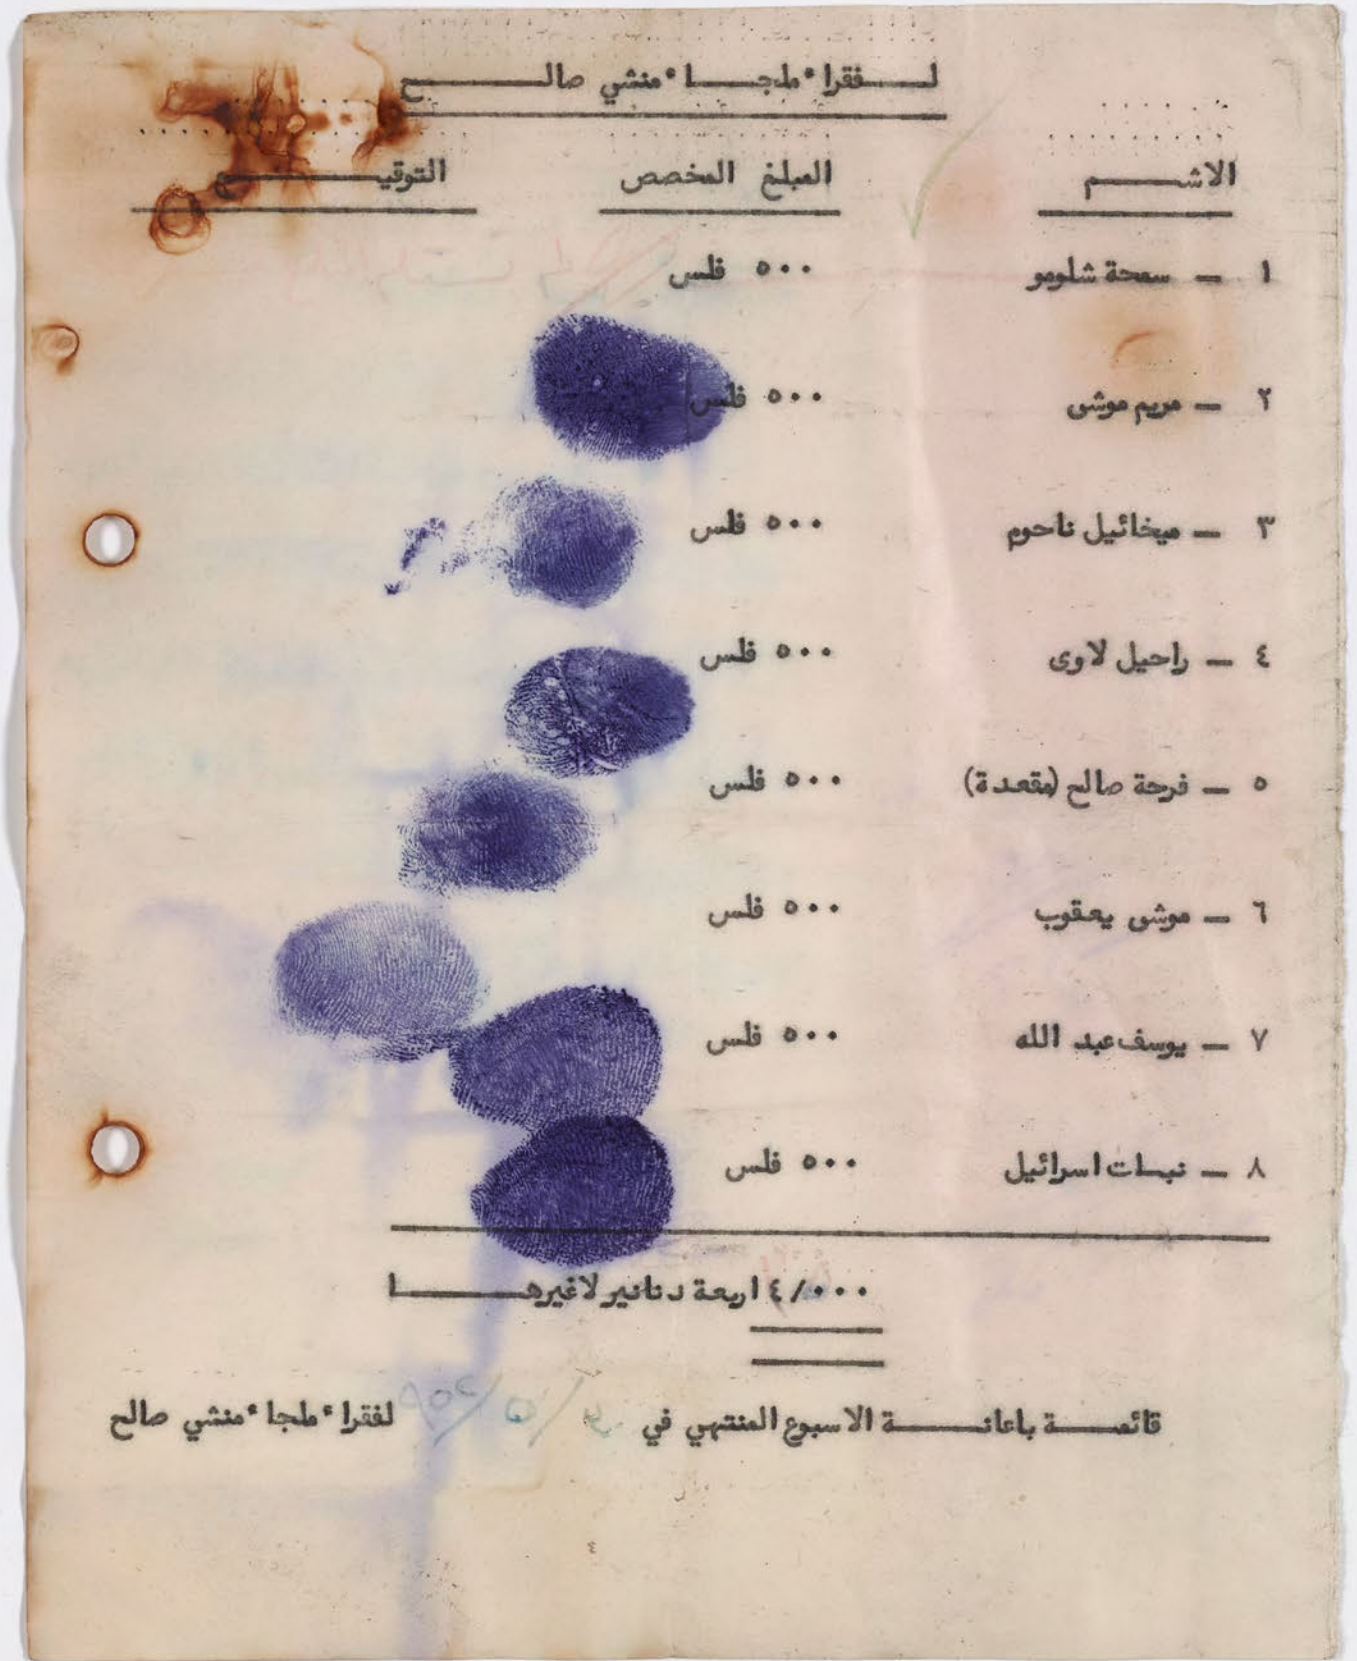 لــفقراء ملجــا منشي صالــــح
الاســـم المبلغ المخصص التوقيــــع
١ — سمحة شلومو ٥٠٠ فلس
٢ — مريم موشى ٥٠٠ فلس
٣ — ميخائيل ناحوم ٥٠٠ فلس
٤ — راحيل لاوى ٥٠٠ فلس
٥ — فرحة صالح (مقعدة) ٥٠٠ فلس
٦ — موشى يعقوب ٥٠٠ فلس
٧ — يوسف عبد الله ٥٠٠ فلس
٨ — نبات اسرائيل ٥٠٠ فلس
٤/٠٠٠ اربعة دنانير لاغيرهــــا
قائمــة باعانــــة الاسبوع المنتهي في لفقراء ملجا منشي صالح
٤